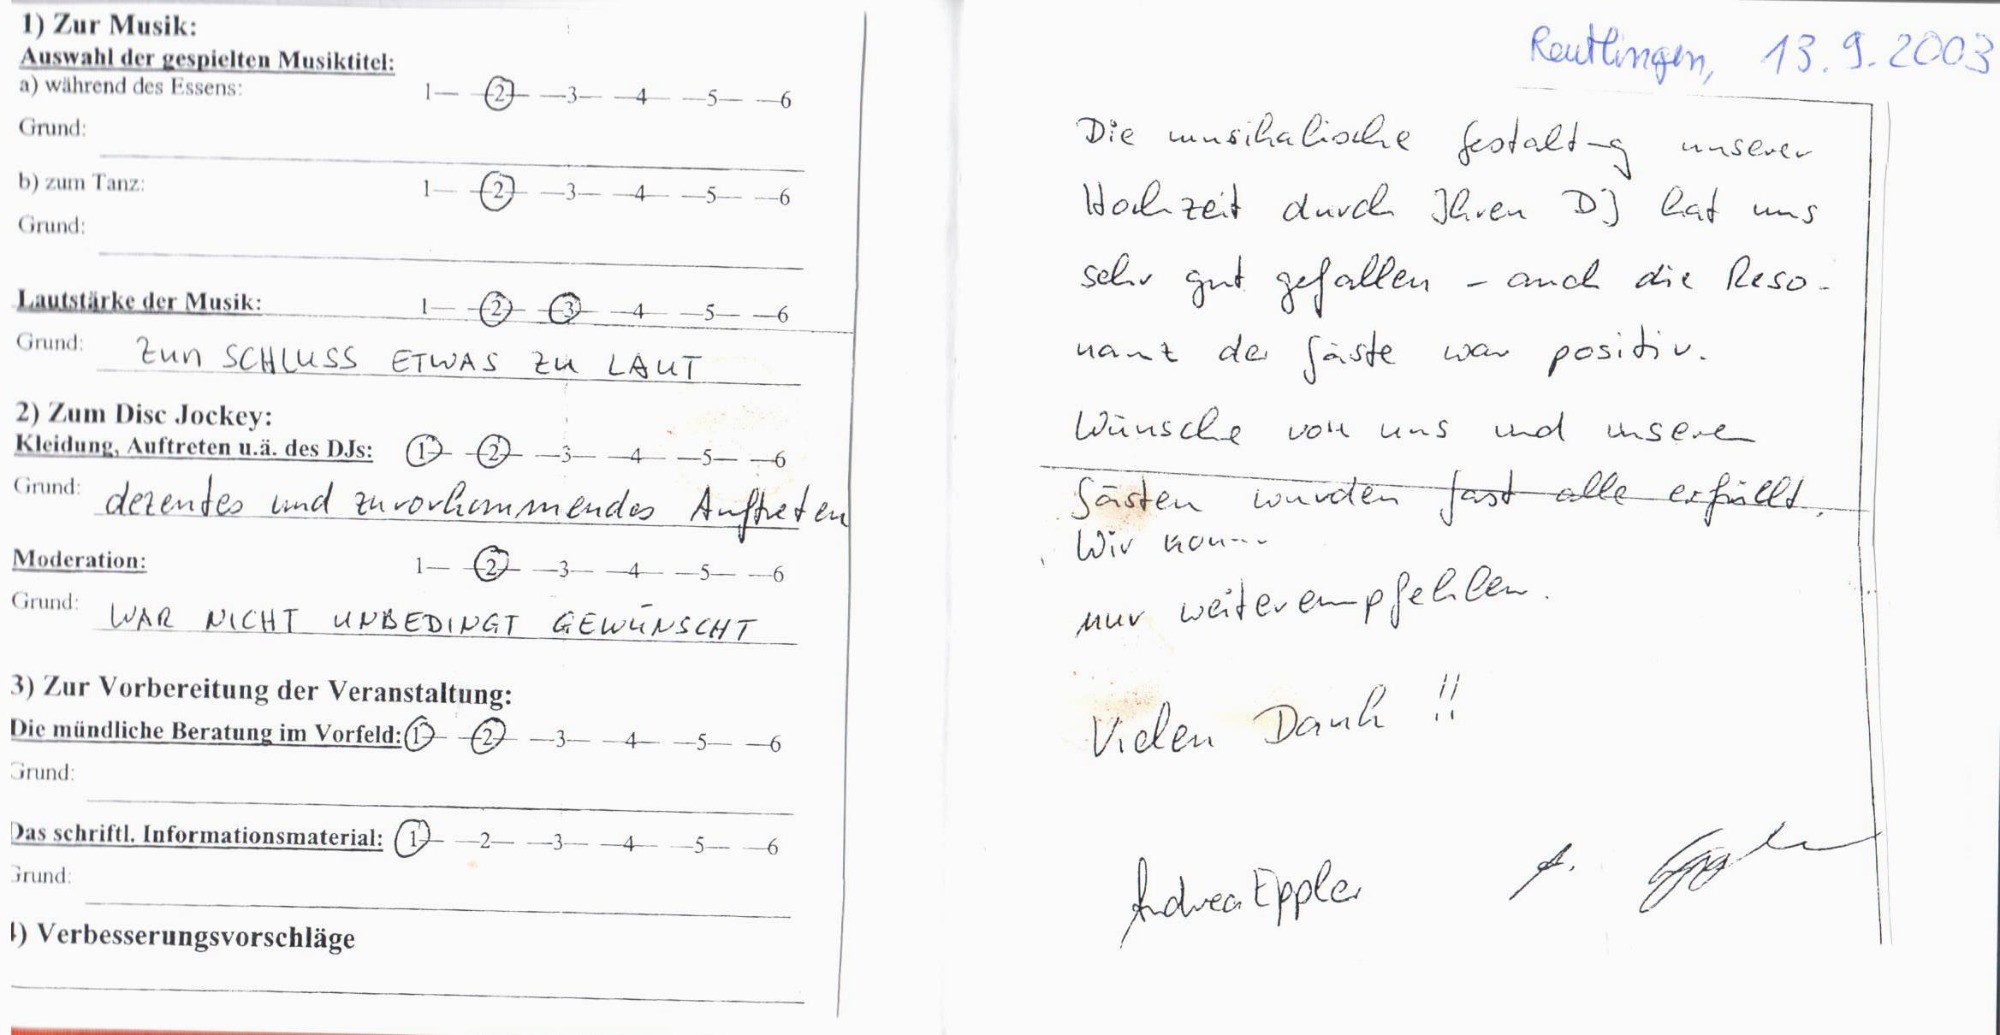 1) Zur Musik:
Auswahl der gespielten Musiktitel:
a) während des Essens: 1— —2— —3— —4— —5— —6
Grund:
b) zum Tanz: 1— —2— —3— —4— —5— —6
Grund:
Lautstärke der Musik: 1— —2— —3— —4— —5— —6
Grund: ZUM SCHLUSS ETWAS ZU LAUT
2) Zum Disc Jockey:
Kleidung, Auftreten u.ä. des DJs: 1— —2— —3— —4— —5— —6
Grund: dezentes und zuvorkommendes Auftreten
Moderation: 1— —2— —3— —4— —5— —6
Grund: WAR NICHT UNBEDINGT GEWÜNSCHT
3) Zur Vorbereitung der Veranstaltung:
Die mündliche Beratung im Vorfeld: 1— —2— —3— —4— —5— —6
Grund:
Das schriftl. Informationsmaterial: 1— —2— —3— —4— —5— —6
Grund:
4) Verbesserungsvorschläge
Reutlingen, 13.9.2003
Die musikalische Gestaltung unserer
Hochzeit durch Ihren DJ hat uns
sehr gut gefallen – auch die Reso-
nanz der Gäste war positiv.
Wünsche von uns und unseren
Gästen wurden fast alle erfüllt.
Wir
nur weiterempfehlen.
Vielen Dank !!
Andrea Eppler
A.